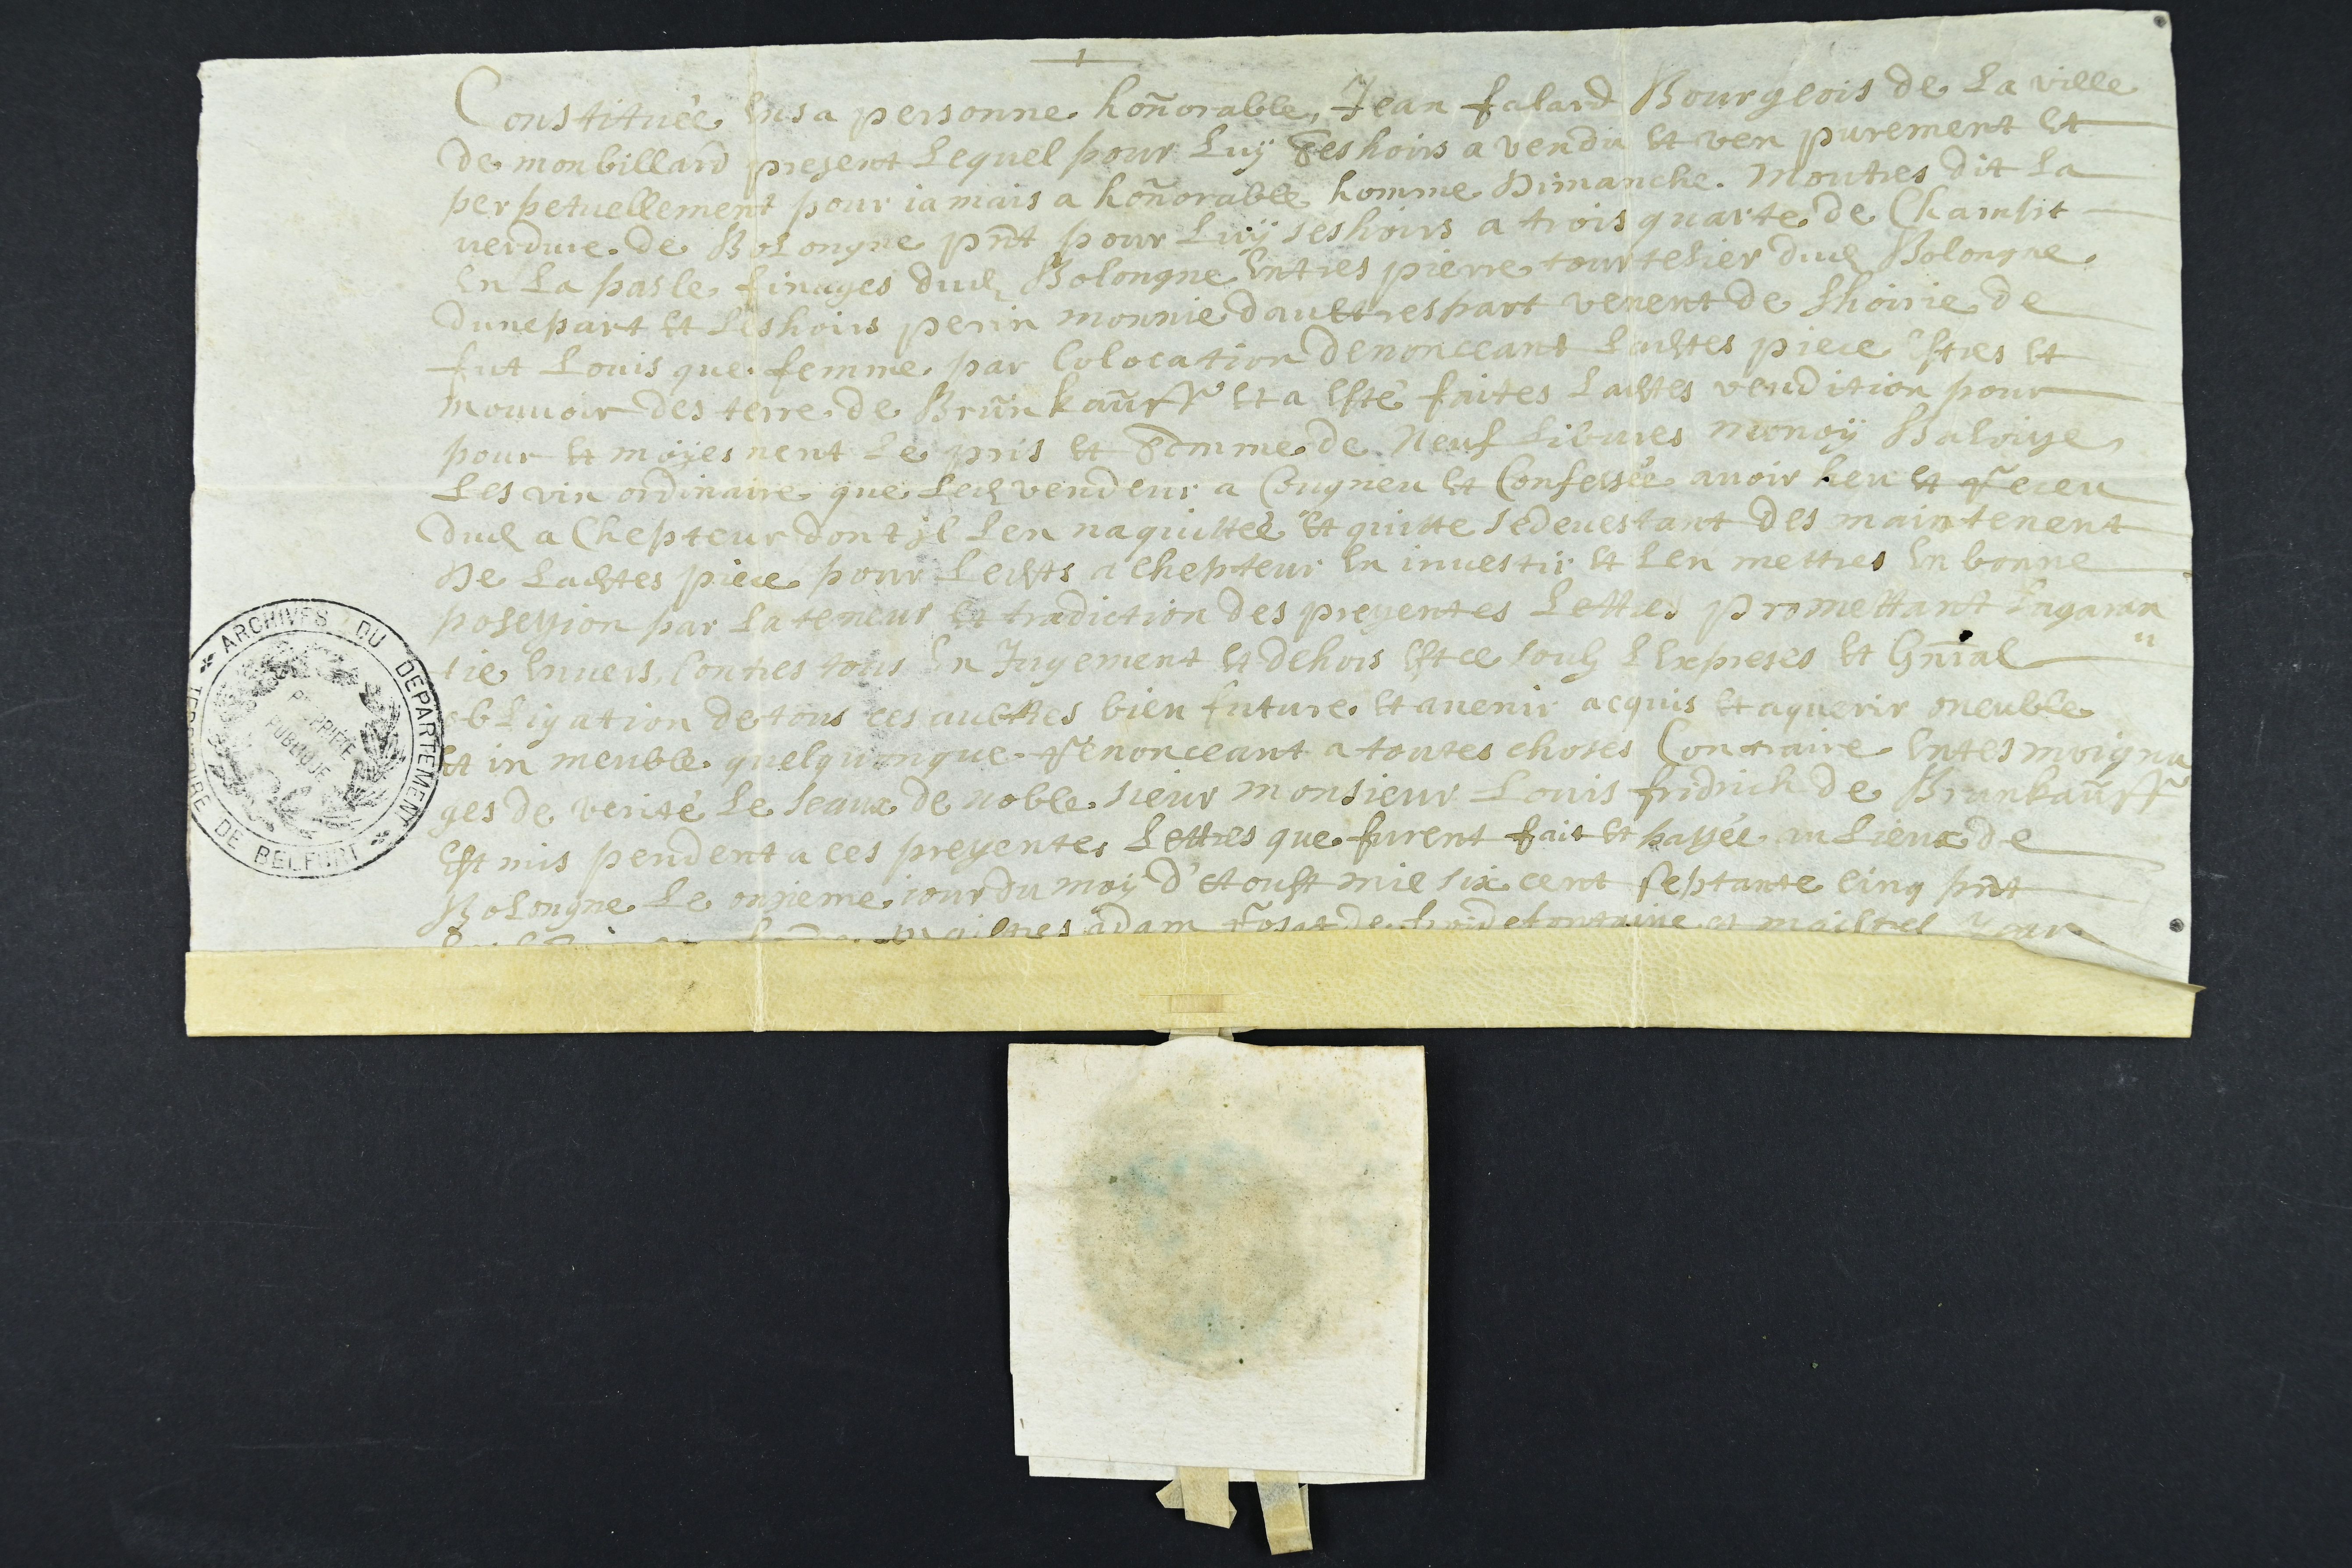 Constituée Ensa personne hoñorable, Jean falard Bourgeois de La ville
de monbillard present Lequel pour Luÿ Seshoirs a vendu Et ven purement Et
perpetuellement pour iamais a hoñorable homme Dimanche. Moutres dit La
verdure de Bolongne pñt pour Luÿ ses hoirs a trois quarte de Champt
En La pasle finages dud Bolongne Entres pierre tourtelier dud Bolongne
dunepart Et Leshoirs perin monnie daultrespart venent de Lhoirie de
fut Louis que femme par Colocation denonceant Ladtes piece Estres Et
mouvoir des terre de Brũnkaũrff Et a Esté faites Ladtes vendition pour
pour Et moÿesnent Le pris Et Somme de Neuf Libures monoÿ Baloise
Les vin ordinaire que Led vendeur a Cougneu Et Confessée auoir heu Et Receu
dud a Chepteur dont jl Len naquittée Et quitte sedevestant des maintenent
De Ladtes piece pour Ledts a Chepteur En investir Et Len mettres En bonne
posession par Lateneur Et tradiction des presentes Lettres promettant Engaran
tie Envers Contres tous En Jugement Et dehors Et ce soub LExpreses Et Gñral
obligation detous ces aulttes bien future Et auenir acquis Et aquerir meuble
Et in meuble quelquonque Renonceant a toutes choses Contraire Entesmoigna
ges de verité Le seaux de noble sieur monsieur Louis fridrich de Brunkaũrff
Est mis pendent a ces presentes Lettres que furent fait Et passée au Lieux de
Bolongne Le onzieme iour du moÿ d'Etoust mil six cent septante cinq pñt
maistres adam Rosat de froidefontaine et maistres
ARCHIVES DU DEPARTEMENT
TERRITOIRE DE BELFORT
PROPRIÉTÉ
PUBLIQUE